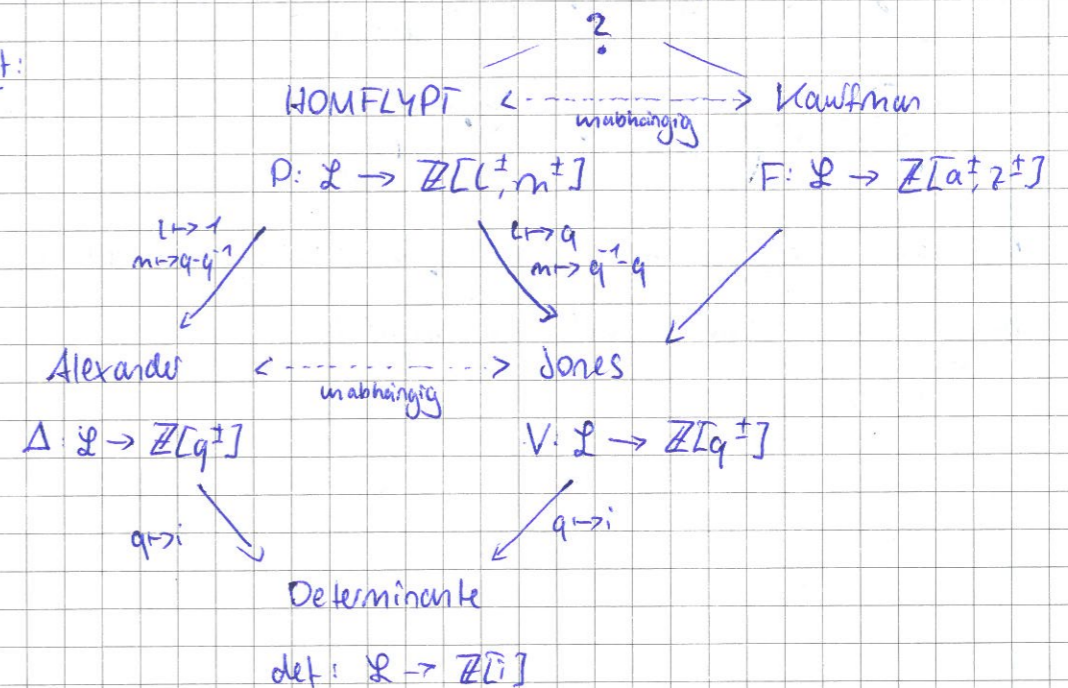 ?
t:
HOMFLYPT <-----> Kauffman
unabhängig
P: ℒ → ℤ[l^±, m^±] F: ℒ → ℤ[a^±, z^±]
l ↦ 1 l ↦ q
m ↦ q-q^-1 m ↦ q^-1-q
Alexander <-----> Jones
unabhängig
Δ: ℒ → ℤ[q^±] V: ℒ → ℤ[q^±]
q ↦ i q ↦ i
Determinante
det: ℒ → ℤ[i]